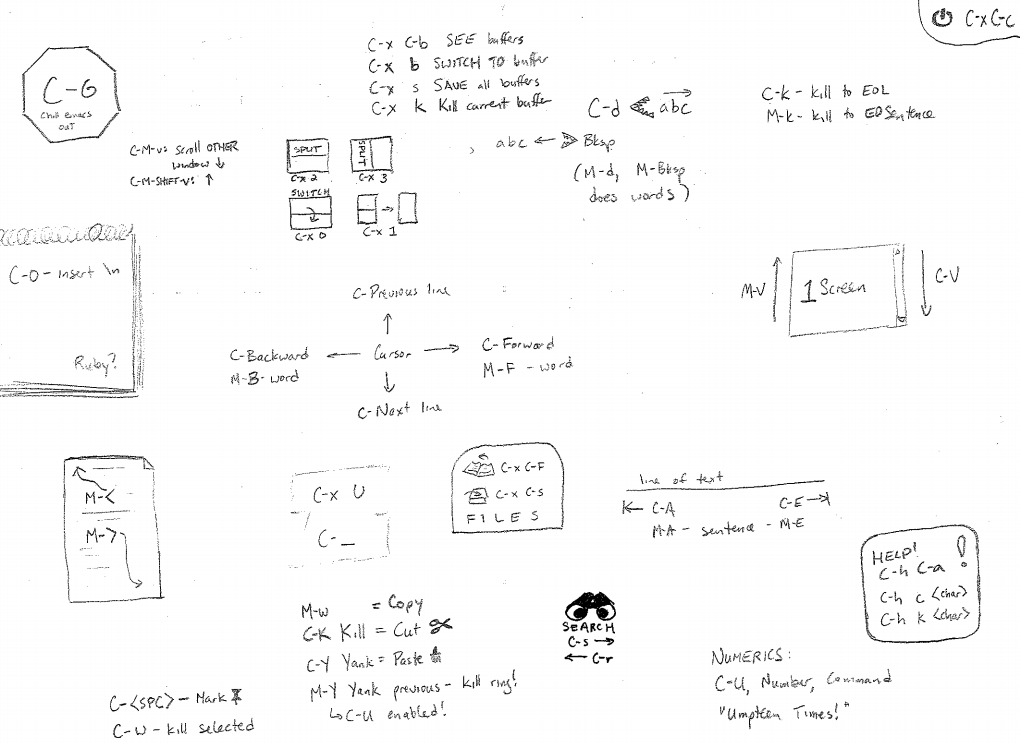 C-x C-c
C-x C-b SEE buffers
C-x b SWITCH TO buffer
C-x s SAVE all buffers
C-x k Kill current buffer
C-G
Chill emacs
OUT
C-d abc
C-k - kill to EOL
M-k - kill to EOSentence
C-M-v: Scroll OTHER
window ↓
C-M-SHIFT-v: ↑
SPLIT
C-x 2
SPLIT
C-x 3
SWITCH
C-x 0
C-x 1
abc ← Bksp
(M-d, M-Bksp
does words)
C-O - insert \n
Ruby?
M-V
1 Screen
C-V
C-Previous line
C-Backward ← Cursor → C-Forward
M-B-word
M-F - word
C-Next line
M-<
M->
C-x U
C-_
C-x C-F
C-x C-s
FILES
line of text
C-A
C-E
M-A - sentence - M-E
HELP!
C-h C-a
C-h c <char>
C-h k <char>
M-w = Copy
C-K Kill = Cut
C-Y Yank = Paste
M-Y Yank previous - kill ring!
↳ C-U enabled!
SEARCH
C-s →
← C-r
NUMERICS:
C-U, Number, Command
"Umpteen Times!"
C-<SPC> - Mark
C-W - kill selected